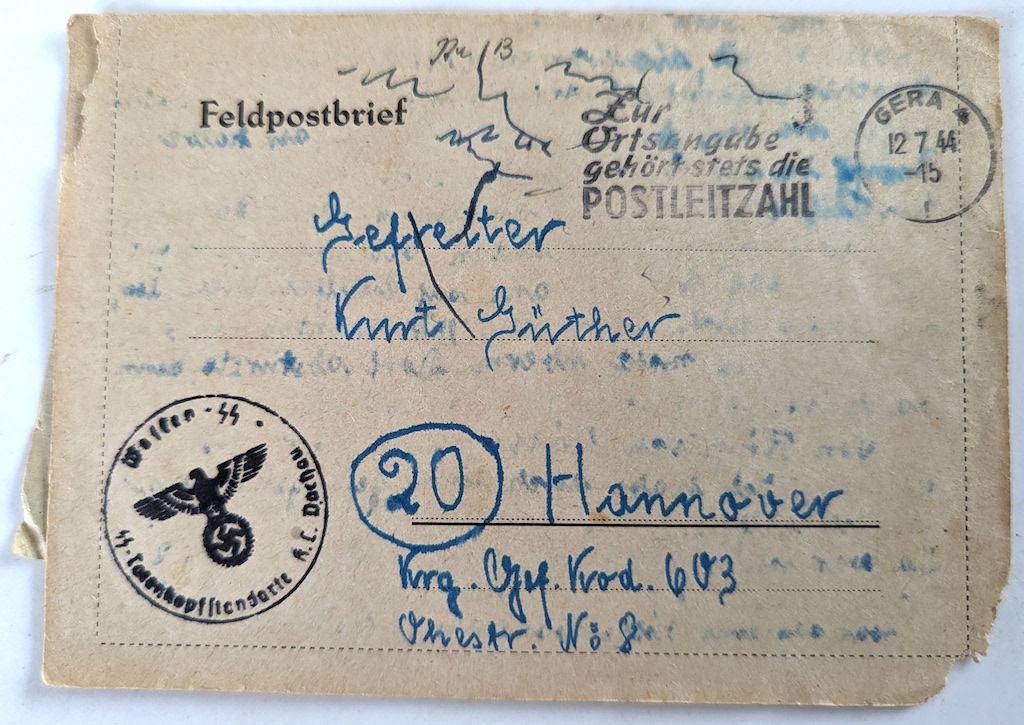 B
Feldpostbrief
Zur
Ortsangabe
gehört stets die
POSTLEITZAHL
GERA
12 7 44
-15
Gefreiter
Kurt Güther
Waffen-SS
SS-Totenkopfstandarte K.L. Dachau
20 Hannover
Krg. Gef. Kod. 603
No 8